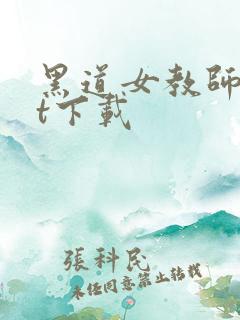 黑道女教師
t下載
張科民
未经同意禁止转载